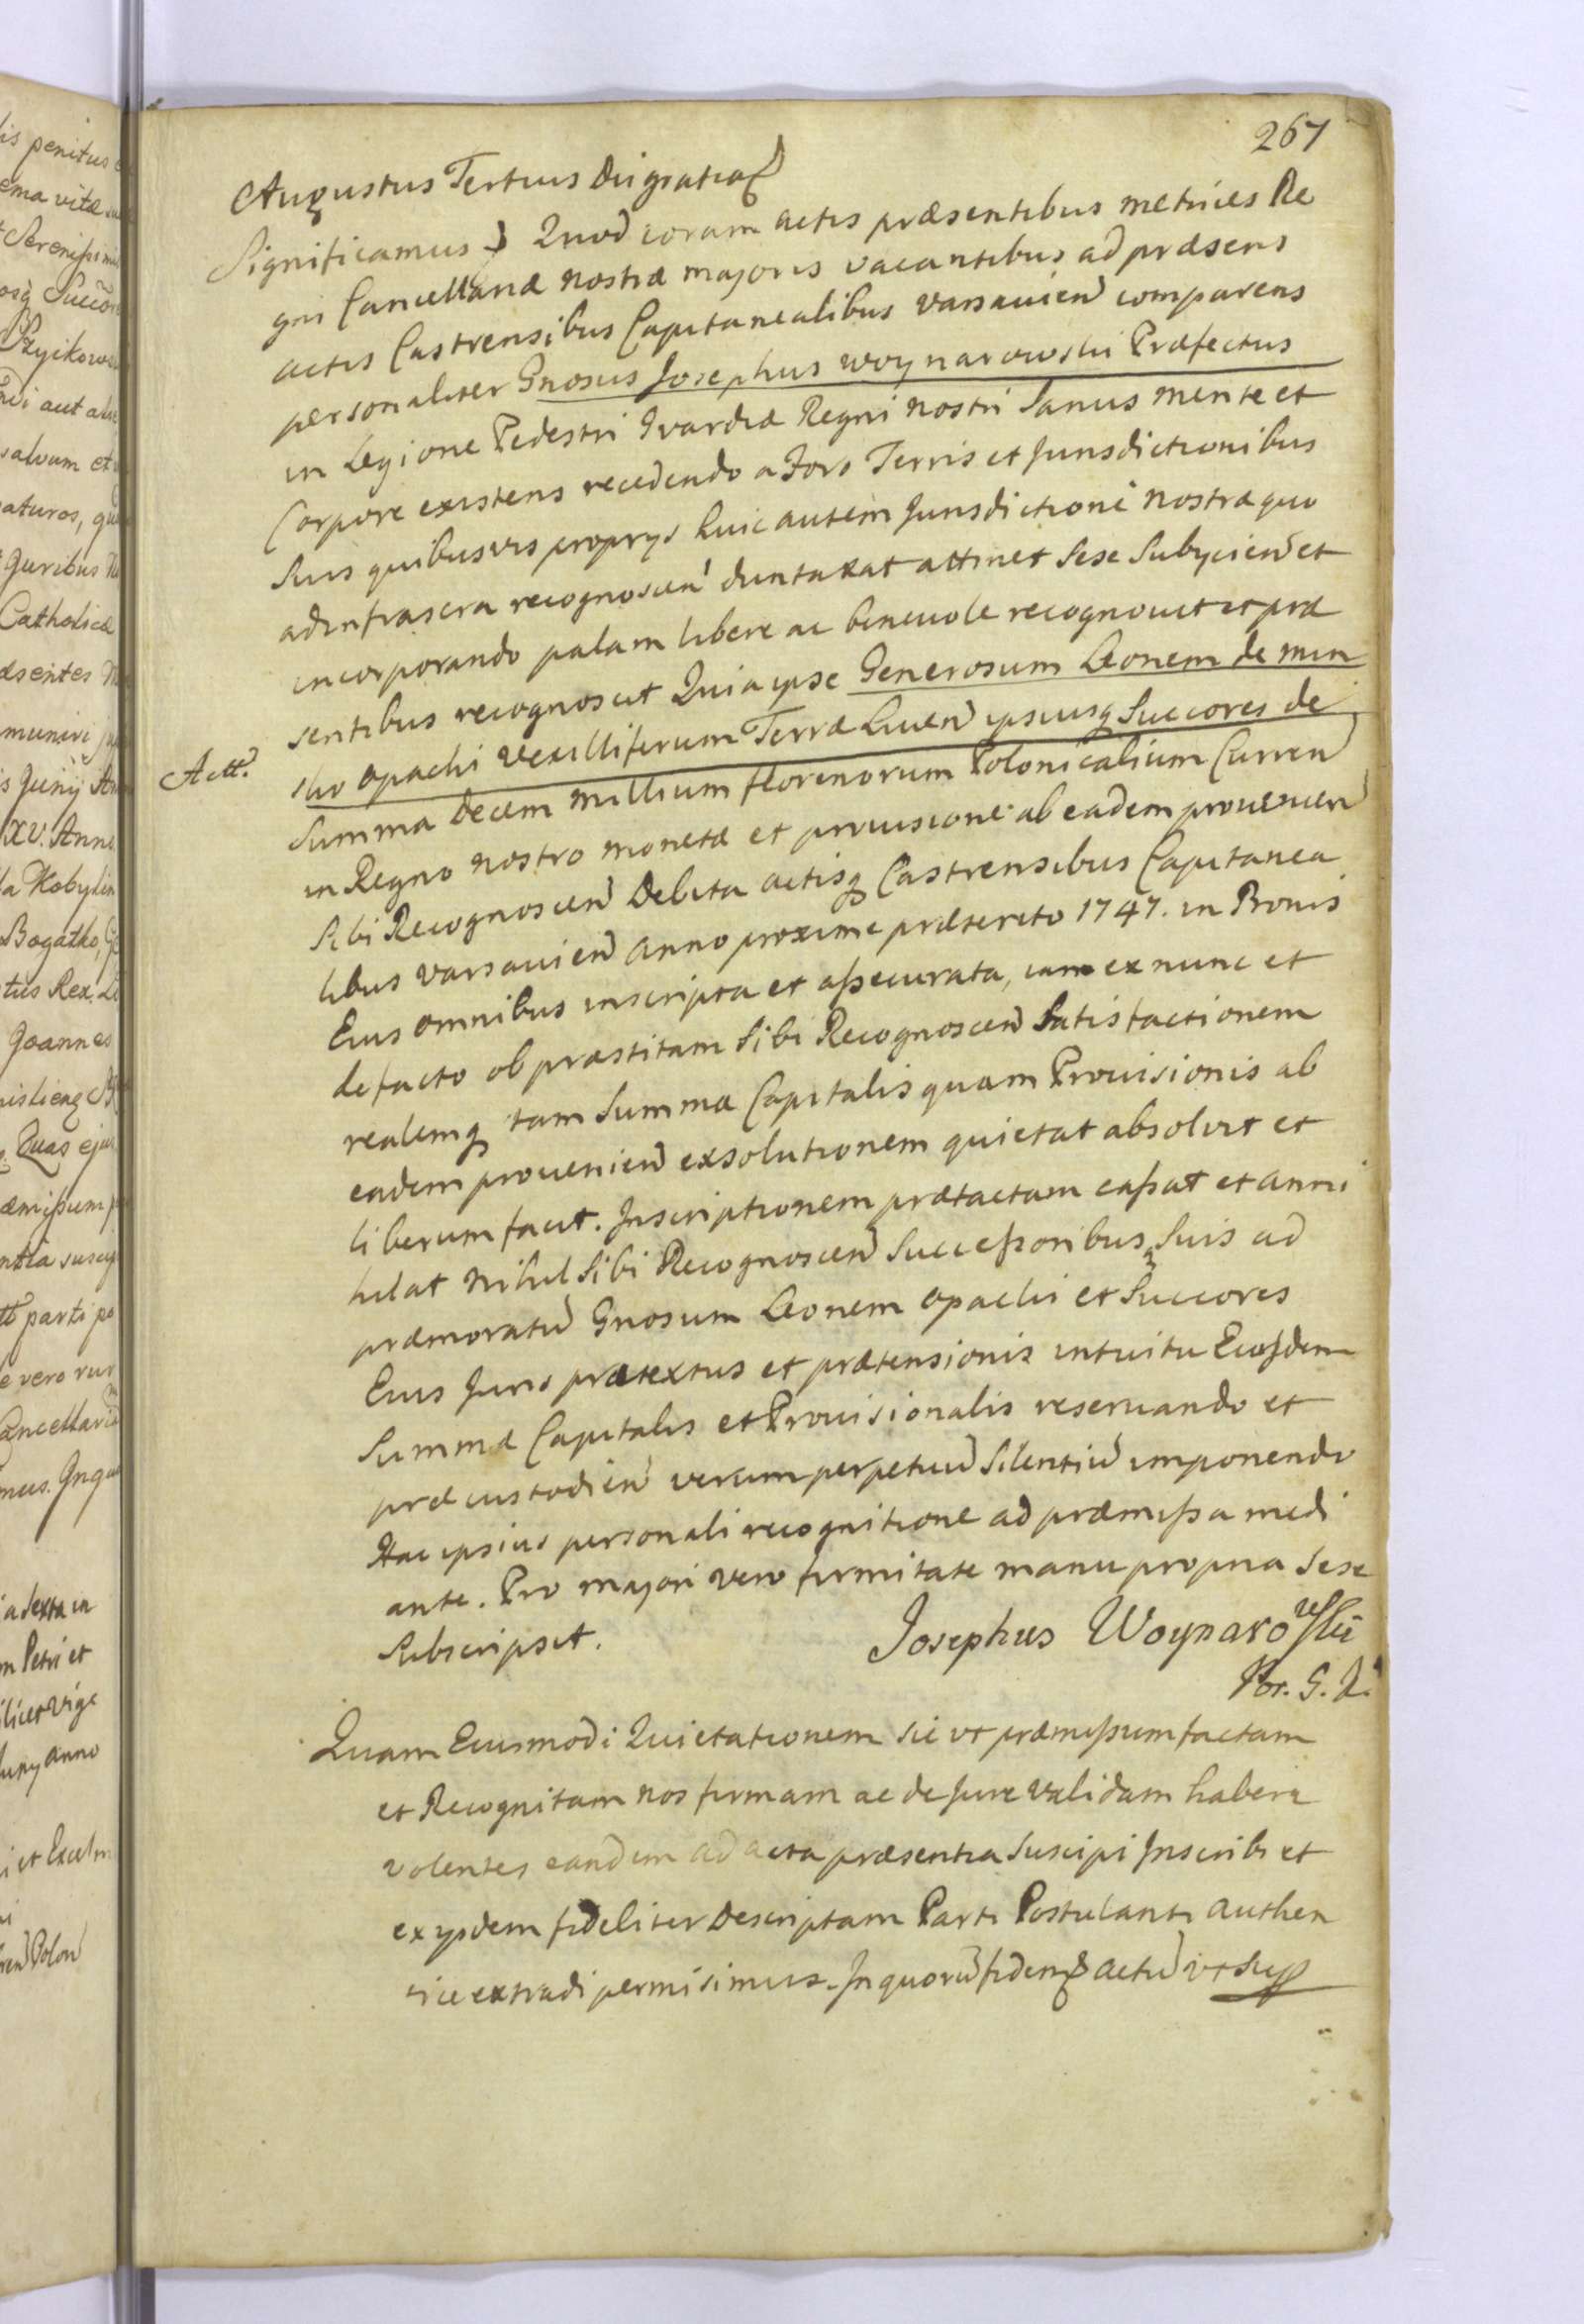 267
Augustus Tertius Dei gratia
Significamus Quod coram actis præsentibus metrices Re
gni Cancellariæ nostræ majoris vacantibus ad præsens
actis Castrensibus Capitanealibus varsavien comparens
personaliter Gnosus Josephus woynarowski Præfectus
in Legione Pedestri Gvardiæ Regni nostri Sanus mente et
Corpore existens recedendo a Foro Terris et Jurisdictionibus
Suis quibusvis proprys huic autem Jurisdictioni nostræ quo
ad infrascra recognoscen duntaxat attinet Sese Subycien et
incorporando palam libere ac benevole recognovit et præ
sentibus recognoscit Quia ipse Generosum Leonem de min
Actt.
sko Opacki vexilliferum Terræ Liven ipsiusq Succores de
Summa Decem millium florenorum Polonicalium Curren
in Regno nostro monetæ et provisione ab eadem provenien
Sibi Recognoscen Debita actisq Castrensibus Capitanea
libus varsavien anno proxime præterito 1747. in Bonis
Eius omnibus inscripta et assecurata, iam ex nunc et
de facto ob præstitam Sibi Recognoscen Satisfactionem
realemq tam Summæ Capitalis quam Provisionis ab
eadem provenien exsolutionem quietat absolvit et
liberum facit. Inscriptionem prætactam cassat et anni
hilat nihil Sibi Recognoscen Successoribusq Suis ad
præmoratu Gnosum Leonem Opacki et Succores
Eius Juris prætextus et prætensionis intuitu Eiusdem
Summæ Capitalis et Provisionalis reservando et
præcustodien verum perpetuu Silentiu imponendo
Hac ipsius personali recognitione ad præmissa medi
ante. Pro majori vero firmitate manu propria Sese
Subscripsit.
Josephus Woynarowski
Por. G. K.
Quam Eiusmodi Quietationem sic ut præmissum factam
et Recognitam nos firmam ac de Jure Validam habere
volentes eandem ad acta præsentia Suscipi Inscribi et
ex ysdem fideliter Descriptam Parti Postulanti authen
tice extradi permisimus. In quoru fidem actu ut Sup